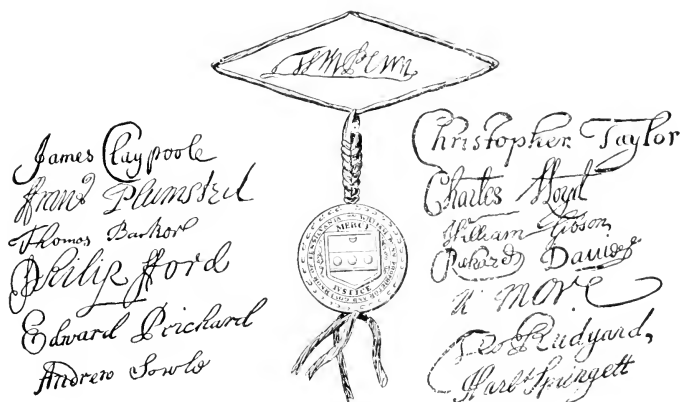 Wm Penn
James Claypoole
Franc Plumsted
Thomas Barker
Philip fford
Edward Prichard
Andrew Sowle
MERCY
JVSTICE
Christopher Taylor
Charles lloyd
William Gibson
Richard Davies
N More
Geo Rudyard,
Harbt Springett